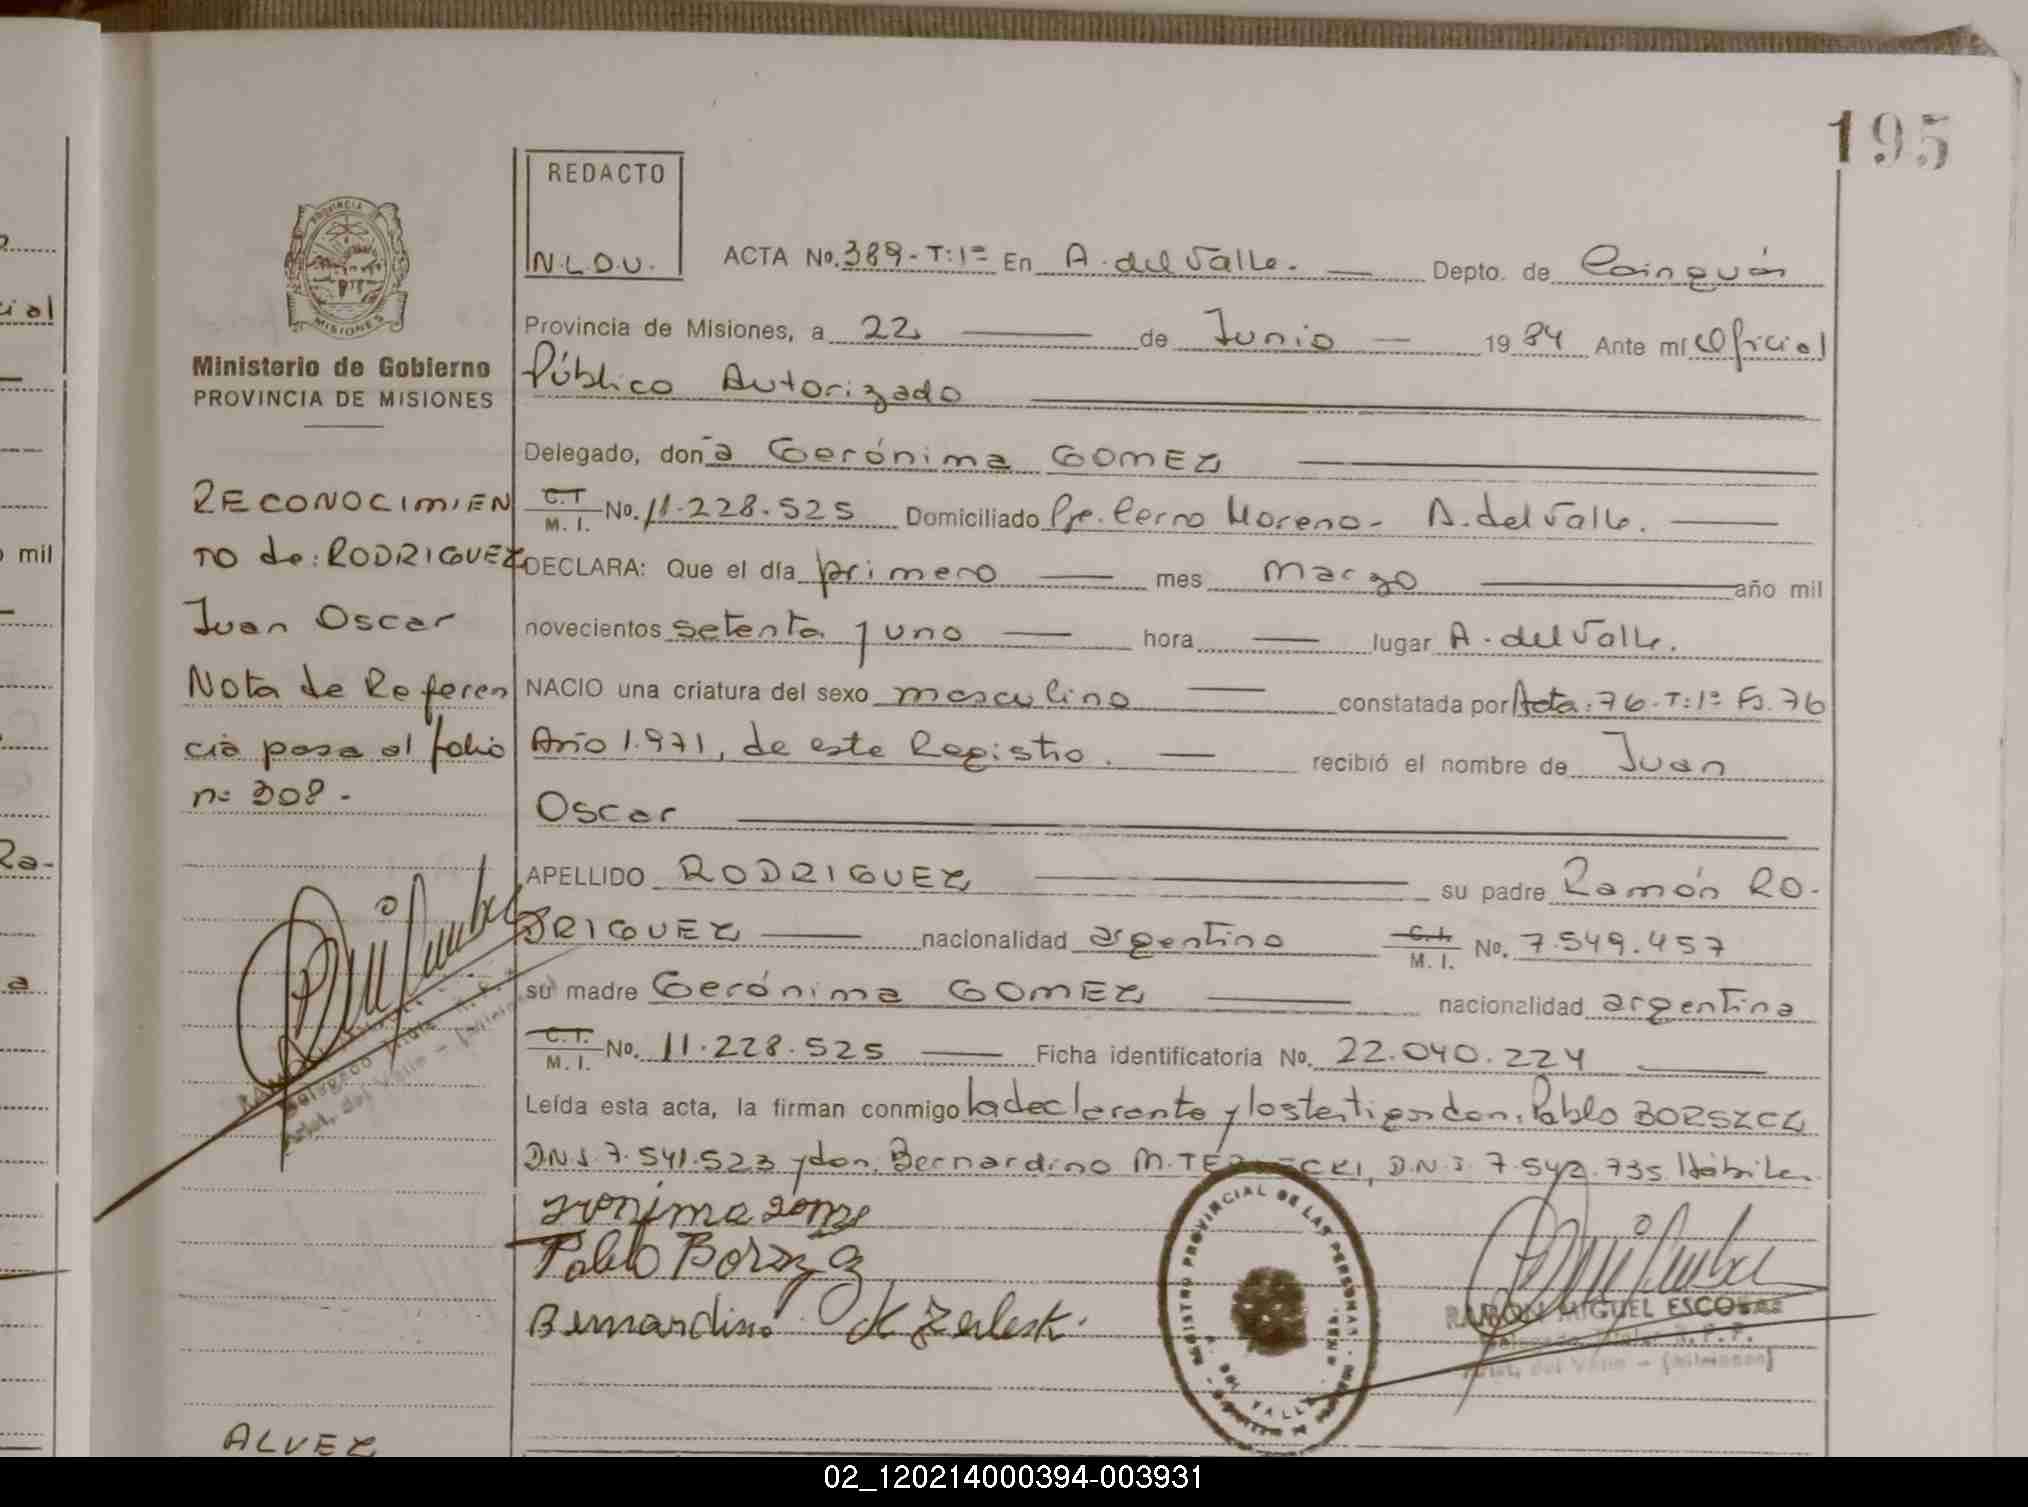 195
REDACTO
N.L.D.U.
PROVINCIA
MISIONES
Ministerio de Gobierno
PROVINCIA DE MISIONES
ACTA No. 389-T:1º En A. del Valle. Depto. de Cainguás
Provincia de Misiones, a 22 de Junio 1984 Ante mí Oficial
Público Autorizado
Delegado, doña Gerónima GOMEZ
C.I. M. I. No. 11.228.525 Domiciliado Pje. Cerro Moreno- A. del Valle.
DECLARA: Que el día primero mes marzo año mil
novecientos setenta y uno hora lugar A. del Valle.
NACIO una criatura del sexo masculino constatada por Acta: 76-T:1º Fs. 76
Año 1.971, de este Registro. recibió el nombre de Juan
Oscar
APELLIDO RODRIGUEZ su padre Ramón RO-
DRIGUEZ nacionalidad argentino C.I. M. I. No. 7.549.457
su madre Gerónima GOMEZ nacionalidad argentina
C.I. M. I. No. 11.228.525 Ficha identificatoria No. 22.040.224
Leída esta acta, la firman conmigo la declarante y los testigos don: Pablo BORSZCZ
DNI. 7.541.523 y don. Bernardino M. D.N.I. 7.542.735 Hábiles
RECONOCIMIEN
TO de: RODRIGUEZ
Juan Oscar
Nota de Referen
cia pasa al folio
nº 308-
Pablo
Bernardino
REGISTRO PROVINCIAL DE LAS PERSONAS
RAMON MIGUEL ESCOBAR
Delegado Titular R. P. P.
Arist. del Valle - (Misiones)
ALVEZ
cial
mil
Ra-
a
02_120214000394-003931